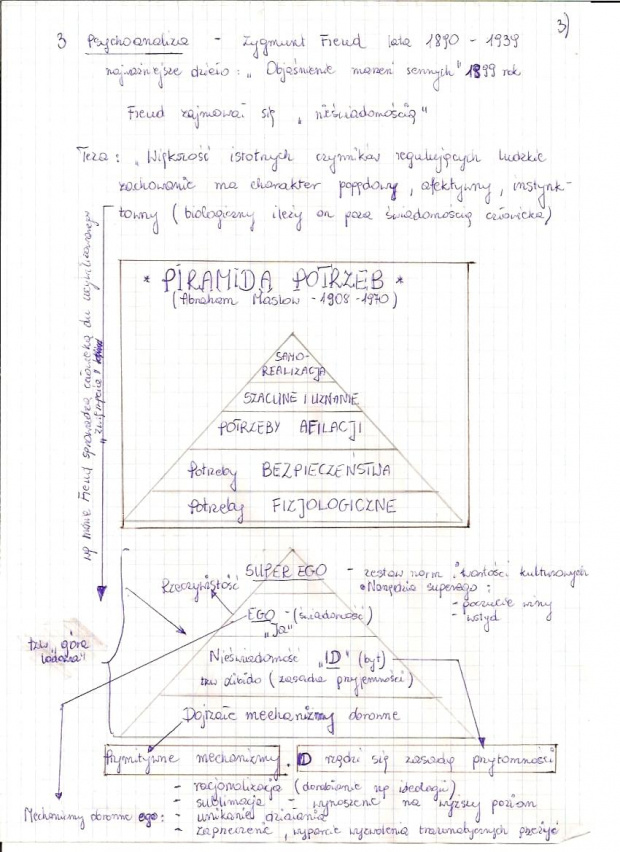 3)
3 Psychoanaliza - Zygmunt Freud lata 1890 - 1939
najważniejsze dzieło: „Objaśnienie marzeń sennych" 1899 rok
Freud zajmował się „nieświadomością"
Teza: „Większość istotnych czynników regulujących ludzkie
zachowanie ma charakter popędowy, afektywny, instynk-
towny (biologiczny i leży on poza świadomością człowieka)
wg mnie Freud sprowadza człowieka do
„zwierzęcia"
* PIRAMIDA POTRZEB *
(Abraham Maslow - 1908 - 1970)
SAMO-
REALIZACJA
SZACUNE I UZNANIE
POTRZEBY AFILACJI
Potrzeby BEZPIECZEŃSTWA
Potrzeby FIZJOLOGICZNE
SUPER EGO - zestaw norm i wartości kulturowych
Rzeczywistość
• Narzędzia superego:
- poczucie winy
- wstyd
EGO - (świadomość)
„Ja"
tzw „góra
lodowa"
Nieświadomość „ID" (byt)
tzw libido (zasada przyjemności)
Dojrzałe mechanizmy obronne
Prymitywne mechanizmy. ID rządzi się zasadą przytomności
- racjonalizacja (dorabianie np ideologii)
- sublimacja - wynoszenie na wyższy poziom
Mechanizmy obronne ego: - unikanie działania
- zaprzeczenie, wyparcie traumatycznych przeżyć